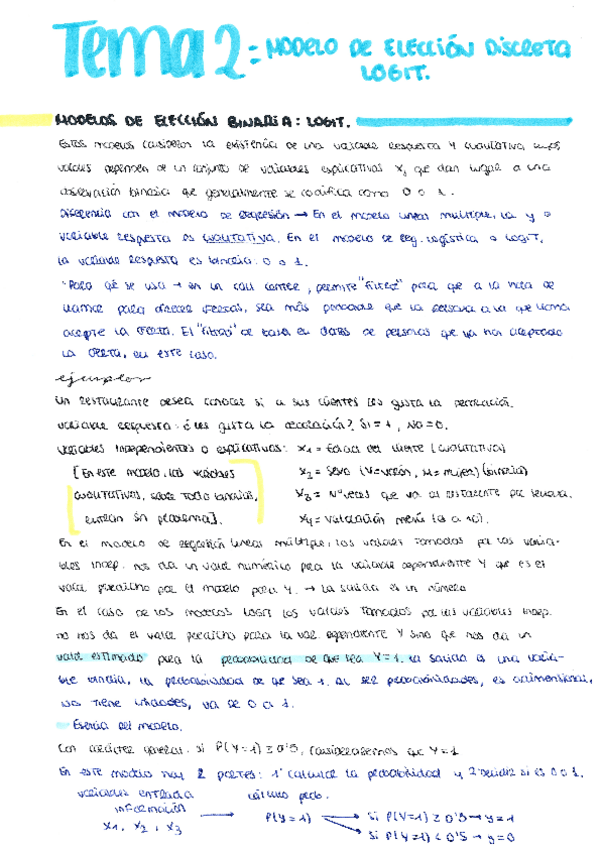 Tema 2: MODELO DE ELECCIÓN DISCRETA
LOGIT.
MODELOS DE ELECCIÓN BINARIA: LOGIT.
Estos modelos consideran la existencia de una variable respuesta Y cualitativa cuyos
valores dependen de un conjunto de variables explicativas X, que dan lugar a una
observación binaria que generalmente se codifica como 0 o 1.
Diferencia con el modelo de regresión → En el modelo lineal múltiple, la y o
variable respuesta es cualitativa. En el modelo de reg. logística o logit,
la variable respuesta es binaria: 0 o 1.
Para qé se usa → en un call center, permite "filtrar" para que a la hora de
llamar para ofrecer ofertas, sea más probable que la persona a la que llama
acepte la oferta. El "filtro" se basa en datos de personas que ya han aceptado
la oferta, en este caso.
ejemplo
Un restaurante desea conocer si a sus clientes les gusta la decoración.
Variable respuesta: ¿les gusta la decoración? Sí=1, No=0.
Variables independientes o explicativas: x1 = Edad del cliente (cualitativa)
[En este modelo, las variables x2 = Sexo (V=varón, M=mujer) (binaria)
cualitativas, sobre todo binarias, x3 = Nº veces que va al restaurante por semana.
entran sin problema]. x4 = Valoración menú (0 a 10).
En el modelo de regresión lineal múltiple, los valores tomados por las varia-
bles indep. nos da un valor numérico para la variable dependiente Y que es el
valor predicho por el modelo para Y. → La salida es un número
En el caso de los modelos logit los valores tomados por las variables indep.
no nos da el valor predicho para la var. dependiente Y sino que nos da un
valor estimado para la probabilidad de que sea Y=1. La salida es una varia-
ble binaria, la probabilidad de que sea 1. Al ser probabilidades, es adimensional,
no tiene unidades, va de 0 a 1.
Esencia del modelo.
Con carácter general: si P(Y=1) ≥ 0'5, consideraremos que Y=1
En este modelo hay 2 partes: 1º calcular la probabilidad y 2º decidir si es 0 o 1.
variables entrada cálculo prob.
información
x1, x2, x3 → P(Y=1) → Si P(Y=1) ≥ 0'5 → y=1
Si P(Y=1) < 0'5 → y=0